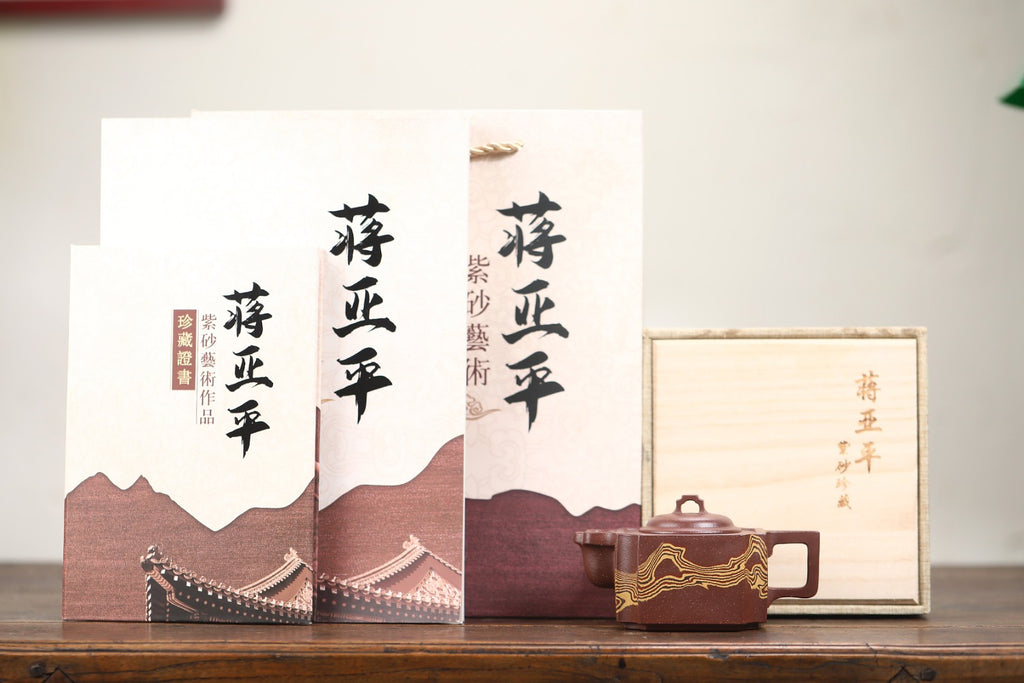 蒋亚平
紫砂藝術作品
珍藏證書
蒋亚平
蒋亚平
紫砂藝術
蔣亞平
紫砂珍藏